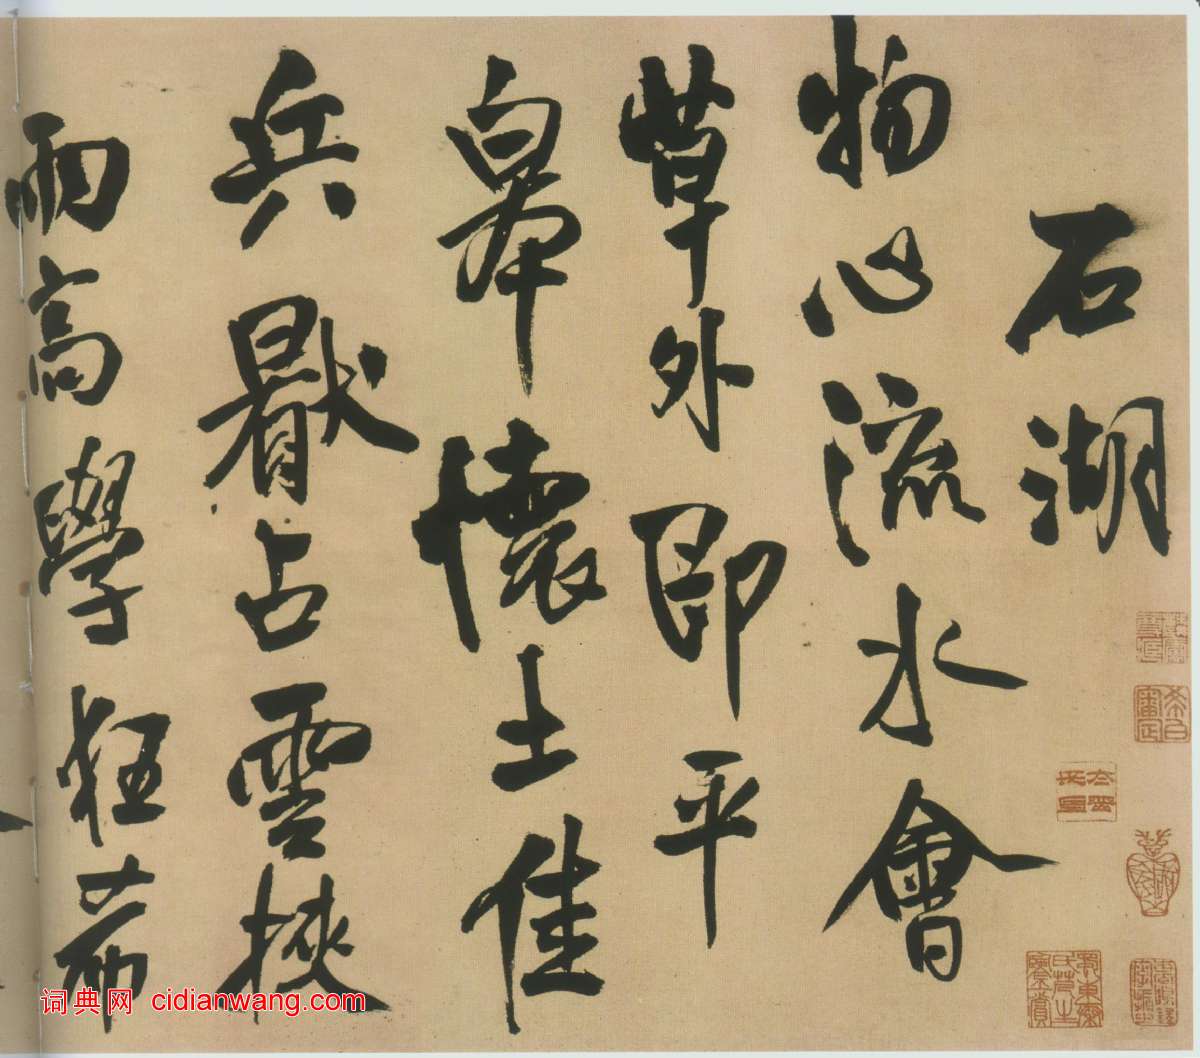 石湖
物心流水會
草外即平
皋懷土佳
兵猒占雲挾
雨高學狂希
词典网 cidianwang.com